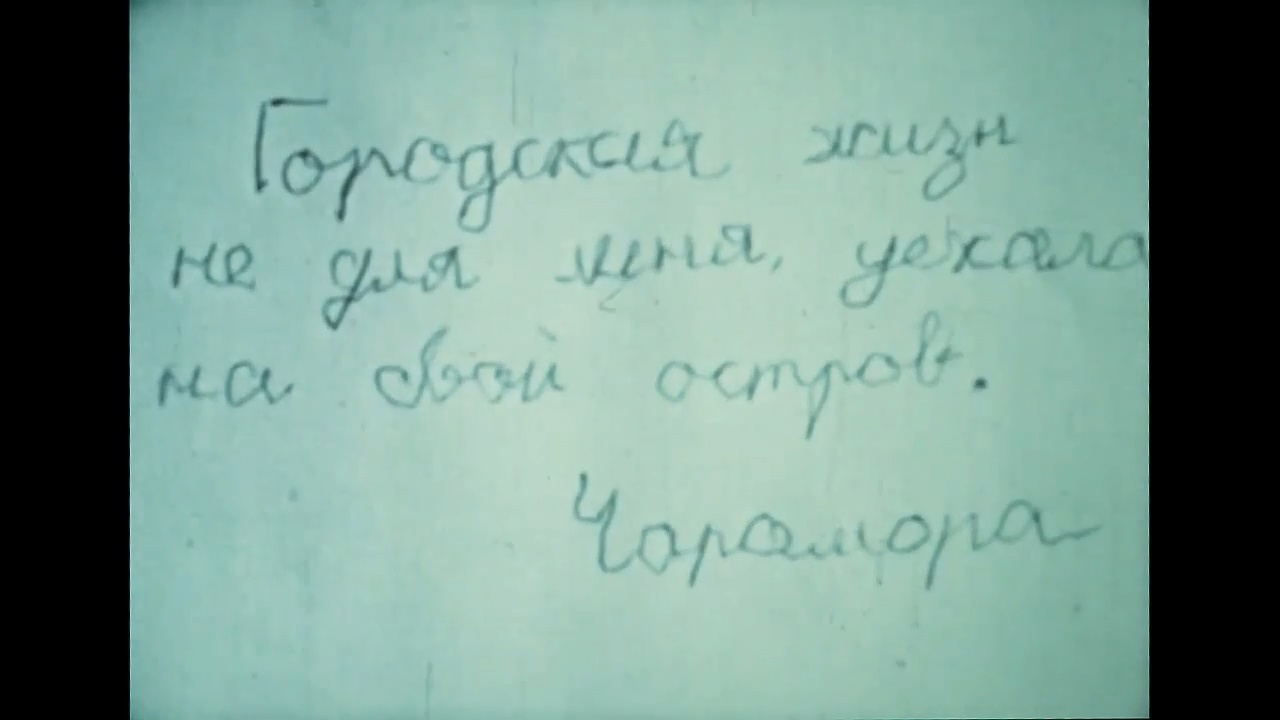 Городская жизн
не для меня, уехала
на свой остров.
Чарамора